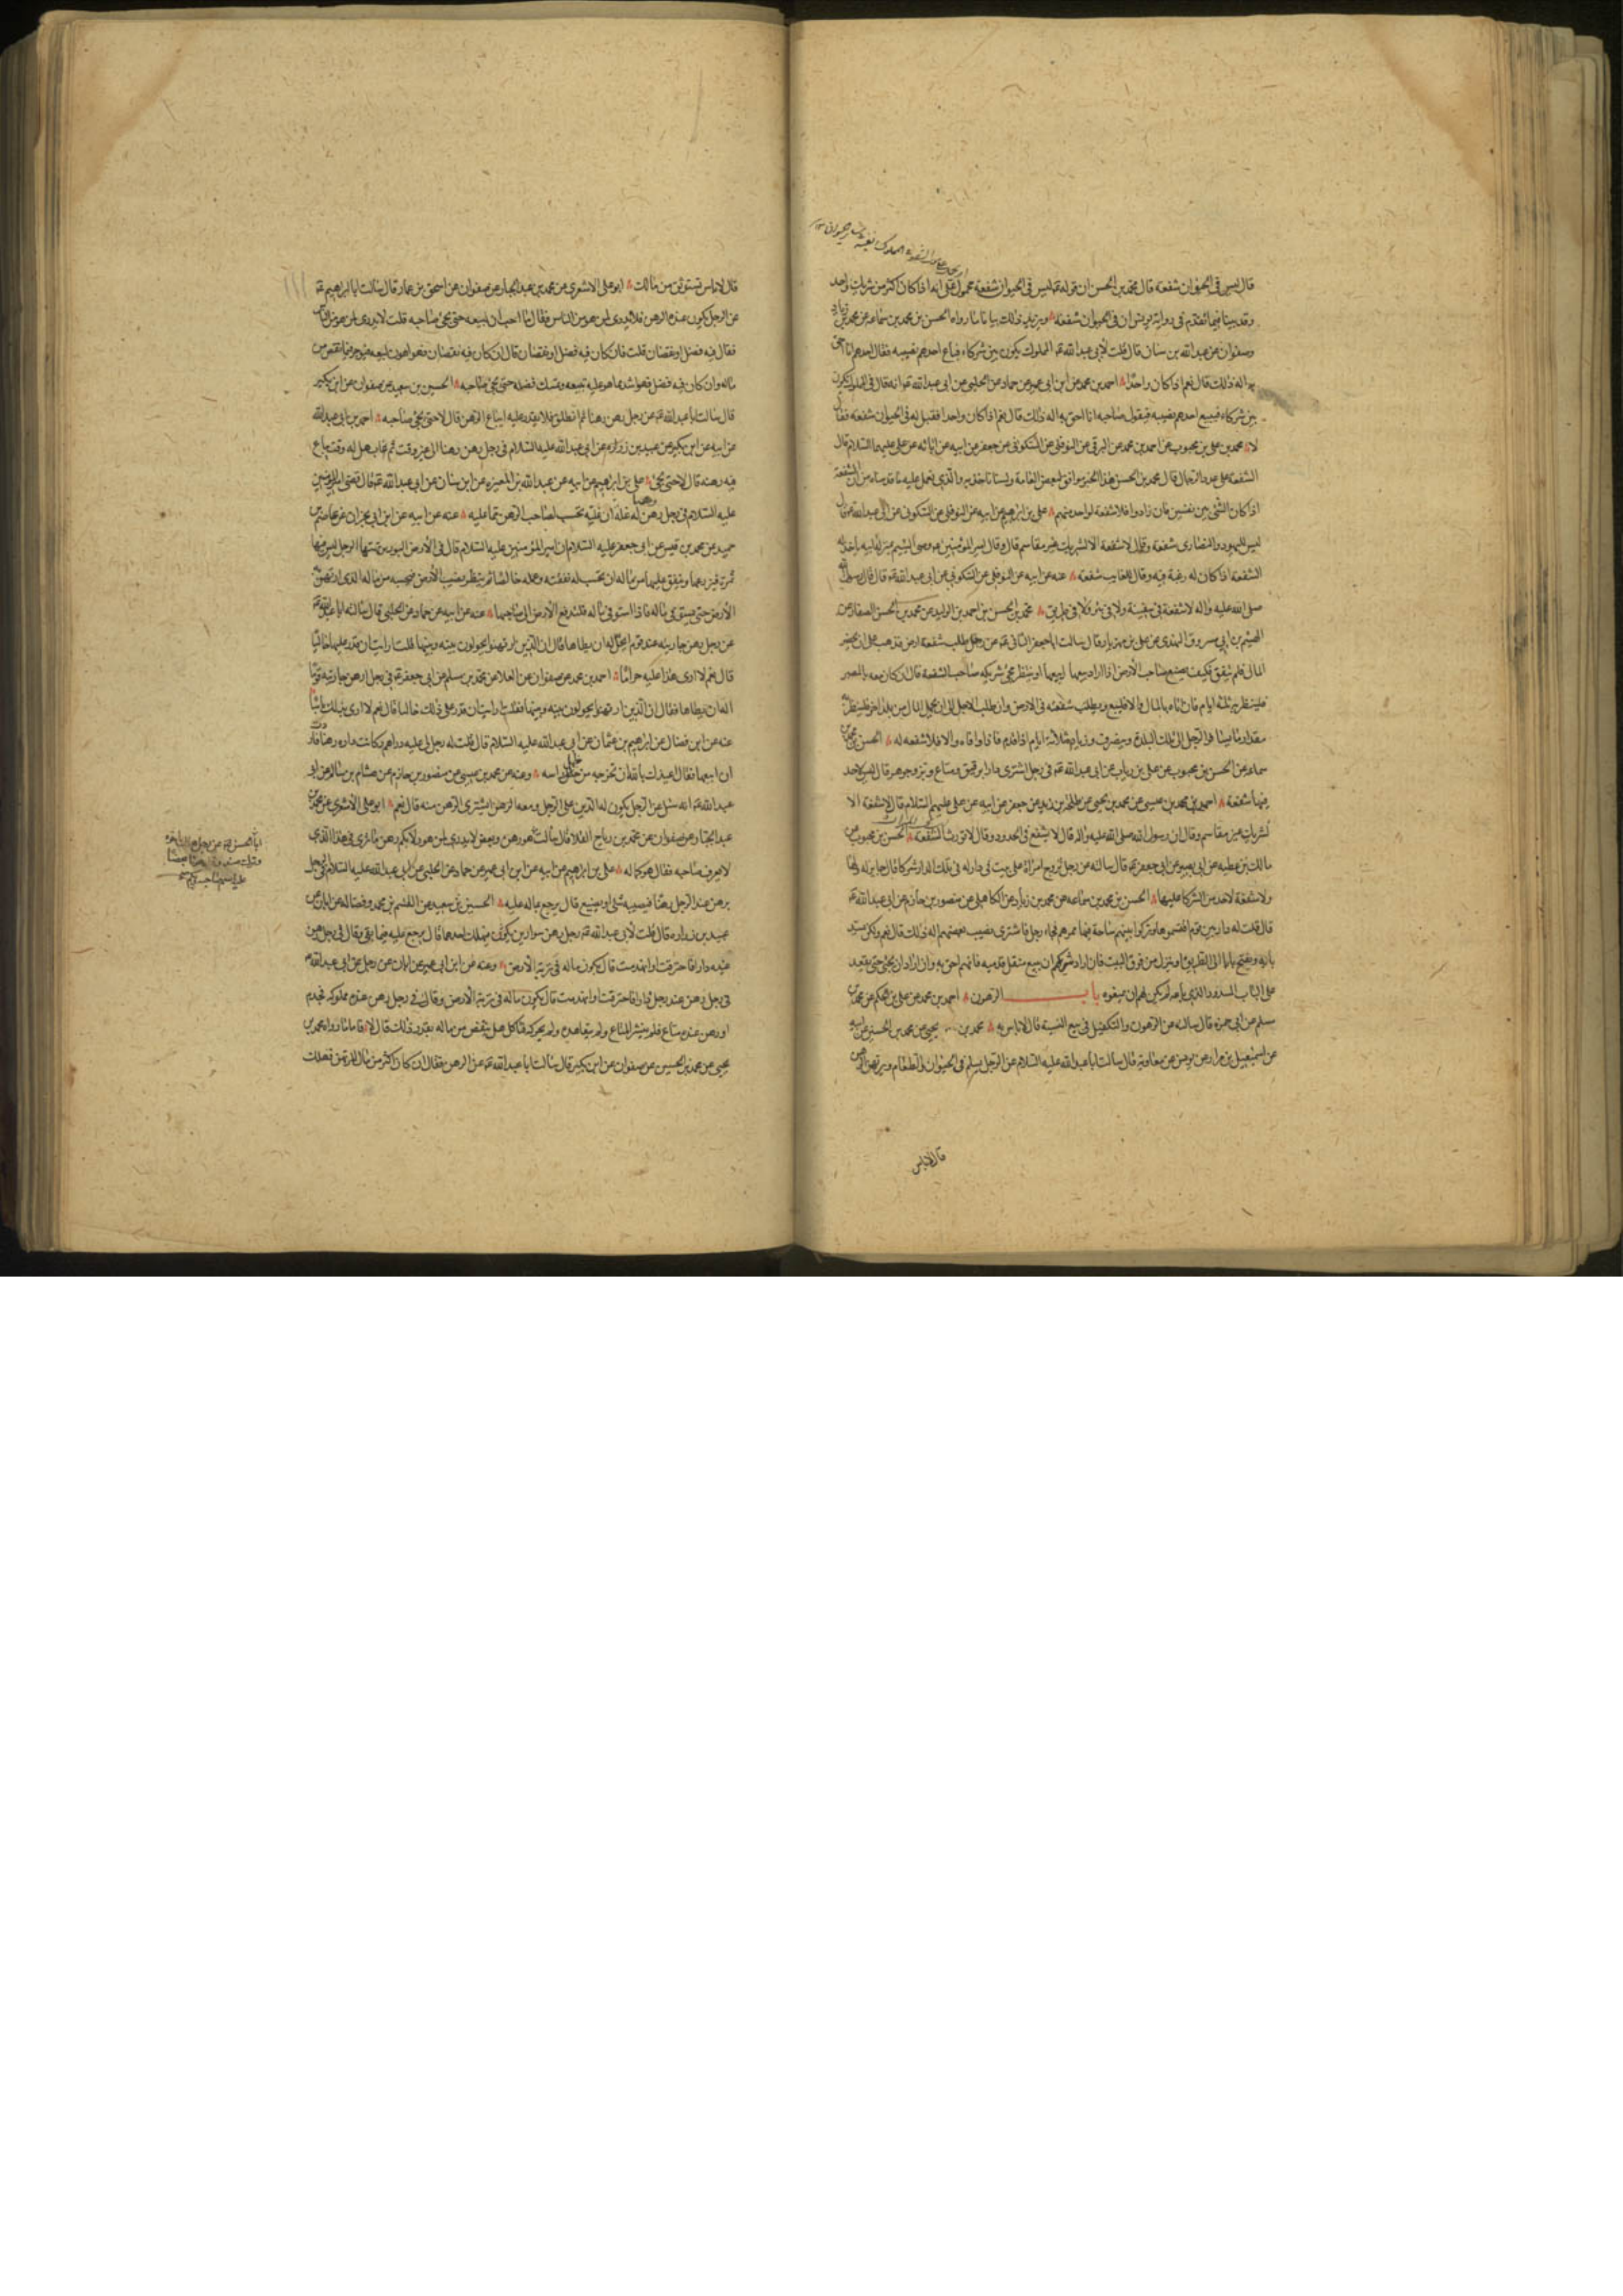 قال ليس فى الحيوان شفعة قال محمد بن الحسن ان قوله ليس فى الحيوان شفعة محمول على انه اذا كان اكثر من شريك واحد
وقد بينا فيما تقدم فى رواية يونس ان فى الحيوان شفعة ويزيد ذلك بيانا ما رواه الحسن بن محمد بن سماعه عن محمد بن زياد
وصفوان عن عبد الله بن سنان قال قلت لأبى عبد الله المملوك يكون بين شركاء فباع احدهم نصيبه فقال احدهم انا احق
به اله ذلك قال نعم اذا كان واحدا احمد بن محمد عن ابن ابى عمير عن حماد عن الحلبى عن ابى عبد الله انه قال فى المملوك يكون
بين شركاء فيبيع احدهم نصيبه فيقول صاحبه انا احق به اله ذلك قال نعم اذا كان واحدا فقيل له فى الحيوان شفعة فقال
لا محمد بن على بن محبوب عن احمد بن محمد عن البرقى عن النوفلى عن السكونى عن جعفر عن ابيه عن ابائه عن على عليهم السلام قال
الشفعة على عدد الرجال قال محمد بن الحسن هذا الخبر موافق لبعض العامة ولسنا ناخذ به والذى نعمل عليه ما قدمناه من ان الشفعة
اذا كان الشئ بين نفسين فان زادوا فلا شفعة لواحد منهم على بن ابراهيم عن ابيه عن النوفلى عن السكونى عن ابى عبد الله قال
ليس لليهود والنصارى شفعة وقال لا شفعة الا لشريك غير مقاسم قال وقال امير المؤمنين وصى اليتيم بمنزلة ابيه ياخذ له
الشفعة اذا كان له رغبة فيه وقال للغايب شفعة عنه عن ابيه عن النوفلى عن السكونى عن ابى عبد الله قال قال رسول الله
صلى الله عليه واله لا شفعة فى سفينة ولا فى نهر ولا فى طريق محمد بن الحسن بن احمد بن الوليد عن محمد بن الحسن الصفار عن
الهيثم بن ابى مسروق النهدى عن على بن مهزيار قال سالت ابا جعفر الثانى عن رجل طلب شفعة ارض فذهب على ان يحضر
المال فلم ينفق فكيف يصنع صاحب الأرض اذا اراد بيعها ايبيعها او ينتظر مجئ شريكه صاحب الشفعة قال ان كان معه بالمصر
فلينتظر به ثلثة ايام فان اتاه بالمال والا فليبع وبطلت شفعته فى الارض وان طلب الاجل الى ان يحمل المال من بلد اخر فلينتظر به
مقدار ما يسافر الرجل الى تلك البلدة وينصرف وزيادة ثلاثة ايام اذا قدم فاذا وافاه والا فلا شفعة له الحسن بن محمد بن
سماعه عن الحسن بن محبوب عن على بن رياب عن ابى عبد الله فى رجل اشترى دارا برقيق ومتاع وبز وجوهر قال ليس لاحد
فيها شفعة احمد بن محمد بن عيسى عن محمد بن يحيى عن طلحة بن زيد عن جعفر عن ابيه عن على عليهم السلام قال لا شفعة الا
لشريك غير مقاسم وقال ان رسول الله صلى الله عليه واله قال لا يشفع فى الحدود وقال لا تورث الشفعة الحسن بن محبوب عن
مالك بن عطيه عن ابى بصير عن ابى جعفر قال سالته عن رجل تزوج امراة على بيت فى دار له فى تلك الدار شركا قال جايز له ولها
ولا شفعة لاحد من الشركا عليها الحسن بن محمد بن سماعه عن محمد بن زياد عن الكاهلى عن منصور بن حازم عن ابى عبد الله
قال قلت له دار بين قوم اقتسموها وتركوا بينهم ساحة فيها ممرهم فجاء رجل فاشترى نصيب بعضهم اله ذلك قال نعم ولكن يسد
بابه ويفتح بابا الى الطريق او ينزل من فوق البيت فان اراد شريكهم ان يبيع منقل قدميه فانهم احق به وان اراد ان يجئ حتى يقعد
على الباب المسدود الذى باعه لم يكن لهم ان يمنعوه باب الرهون احمد بن محمد عن على بن الحكم عن محمد بن
مسلم عن ابى حمزه قال سالته عن الرهون والتكفيل فى بيع النسية قال لا باس به محمد بن يحيى عن محمد بن الحسين عن
عن اسمعيل بن مرار عن يونس عن معاوية قال سالت ابا عبد الله عليه السلام عن الرجل يسلم فى الحيوان والطعام ويرتهن الرهن
قال لا باس
قال لا باس تستوثق من مالك ابو على الاشعرى عن محمد بن عبد الجبار عن صفوان عن اسحق بن عمار قال سالت ابا ابراهيم
عن الرجل يكون عنده الرهن فلا يدرى لمن هو من الناس فقال ما احب ان يبيعه حتى يجئ صاحبه قلت لا يدرى لمن هو من الناس
فقال فيه فضل او نقصان قلت فان كان فيه فضل او نقصان قال ان كان فيه نقصان فهو اهون يبيعه فيوجر فيما نقص من
ماله وان كان فيه فضل فهو اشدهما عليه يبيعه ويمسك فضله حتى يجئ صاحبه الحسين بن سعيد عن صفوان عن ابن بكير
قال سالت ابا عبد الله عن رجل رهن رهنا ثم انطلق فلا يقدر عليه ايباع الرهن قال لا حتى يجئ صاحبه احمد بن ابى عبد الله
عن ابيه عن ابن بكير عن عبيد بن زرارة عن ابى عبد الله عليه السلام فى رجل رهن رهنا الى غير وقت ثم غاب هل له وقت يباع
فيه رهنه قال لا حتى يجئ على بن ابراهيم عن ابيه عن عبد الله بن المغيره عن ابن سنان عن ابى عبد الله قال قضى امير المؤمنين
عليه السلام فى رجل رهن له غلة ان غلته تحسب لصاحب الرهن مما عليه عنه عن ابيه عن ابن ابى نجران عن عاصم بن
حميد عن محمد بن قيس عن ابى جعفر عليه السلام ان امير المؤمنين عليه السلام قال فى الأرض البور يرتهنها الرجل ليس فيها
ثمرة فيزرعها وينفق عليها من ماله ان يحتسب له نفقته وعمله خالصا ثم ينظر نصيب الأرض فيحسبه من ماله الذى ارتهن به
الأرض حتى يستوفى ماله فاذا استوفى ماله فليدفع الأرض الى صاحبها عنه عن ابيه عن حماد عن الحلبى قال سالت ابا عبد الله
عن رجل رهن جاريته عند قوم ايحل له ان يطاها قال ان الذين ارتهنوا يحولون بينه وبينها قلت ارايت ان قدر عليها خاليا
قال نعم لا ارى هذا عليه حراما احمد بن محمد عن صفوان عن العلا عن محمد بن مسلم عن ابى جعفر فى رجل رهن جاريته قوما
اله ان يطاها فقال ان الذين ارتهنوا يحولون بينه وبينها فقلت ارايت ان قدر على ذلك خاليا قال نعم لا ارى بذلك باسا
عنه عن ابن فضال عن ابراهيم بن عثمان عن ابى عبد الله عليه السلام قال قلت له رجل لى عليه دراهم وكانت داره رهنا فاردت
ان ابيعها فقال اعيذك بالله ان تخرجه من ظل راسه وعنه عن محمد بن عيسى عن منصور بن حازم عن هشام بن سالم عن ابى
عبد الله انه سئل عن الرجل يكون له الدين على الرجل ومعه الرهن ايشترى الرهن منه قال نعم ابو على الاشعرى عن محمد بن
عبد الجبار عن صفوان عن محمد بن رياح القلا قال سالت
لا يعرف صاحبه فقال هو كماله على بن ابراهيم عن ابيه عن ابن ابى عمير عن حماد عن الحلبى عن ابى عبد الله عليه السلام فى رجل
يرهن عند الرجل رهنا فيصيبه شئ او يضيع قال يرجع بماله عليه الحسين بن سعيد عن القسم بن محمد وفضاله عن ابان عن
عبيد بن زراره قال قلت لأبى عبد الله رجل رهن سوارين فهلك احدهما قال يرجع عليه فيما بقى وقال فى رجل رهن
عنده دارا فاحترقت او انهدمت قال يكون ماله فى تربة الأرض وعنه عن ابن ابى عمير عن ابان عن رجل عن ابى عبد الله
فى رجل رهن عند رجل دارا فاحترقت او انهدمت قال يكون ماله فى تربة الأرض وقال فى رجل رهن عنده مملوكه فجذم
او رهن عنده متاع فلم ينشر المتاع ولم يتعاهده ولم يحركه فتاكل هل ينقص من ماله بقدر ذلك قال لا فاما ما رواه محمد بن
يحيى عن محمد بن الحسين عن صفوان عن ابن بكير قال سالت ابا عبد الله عن الرهن فقال ان كان اكثر من مال المرتهن فهلك